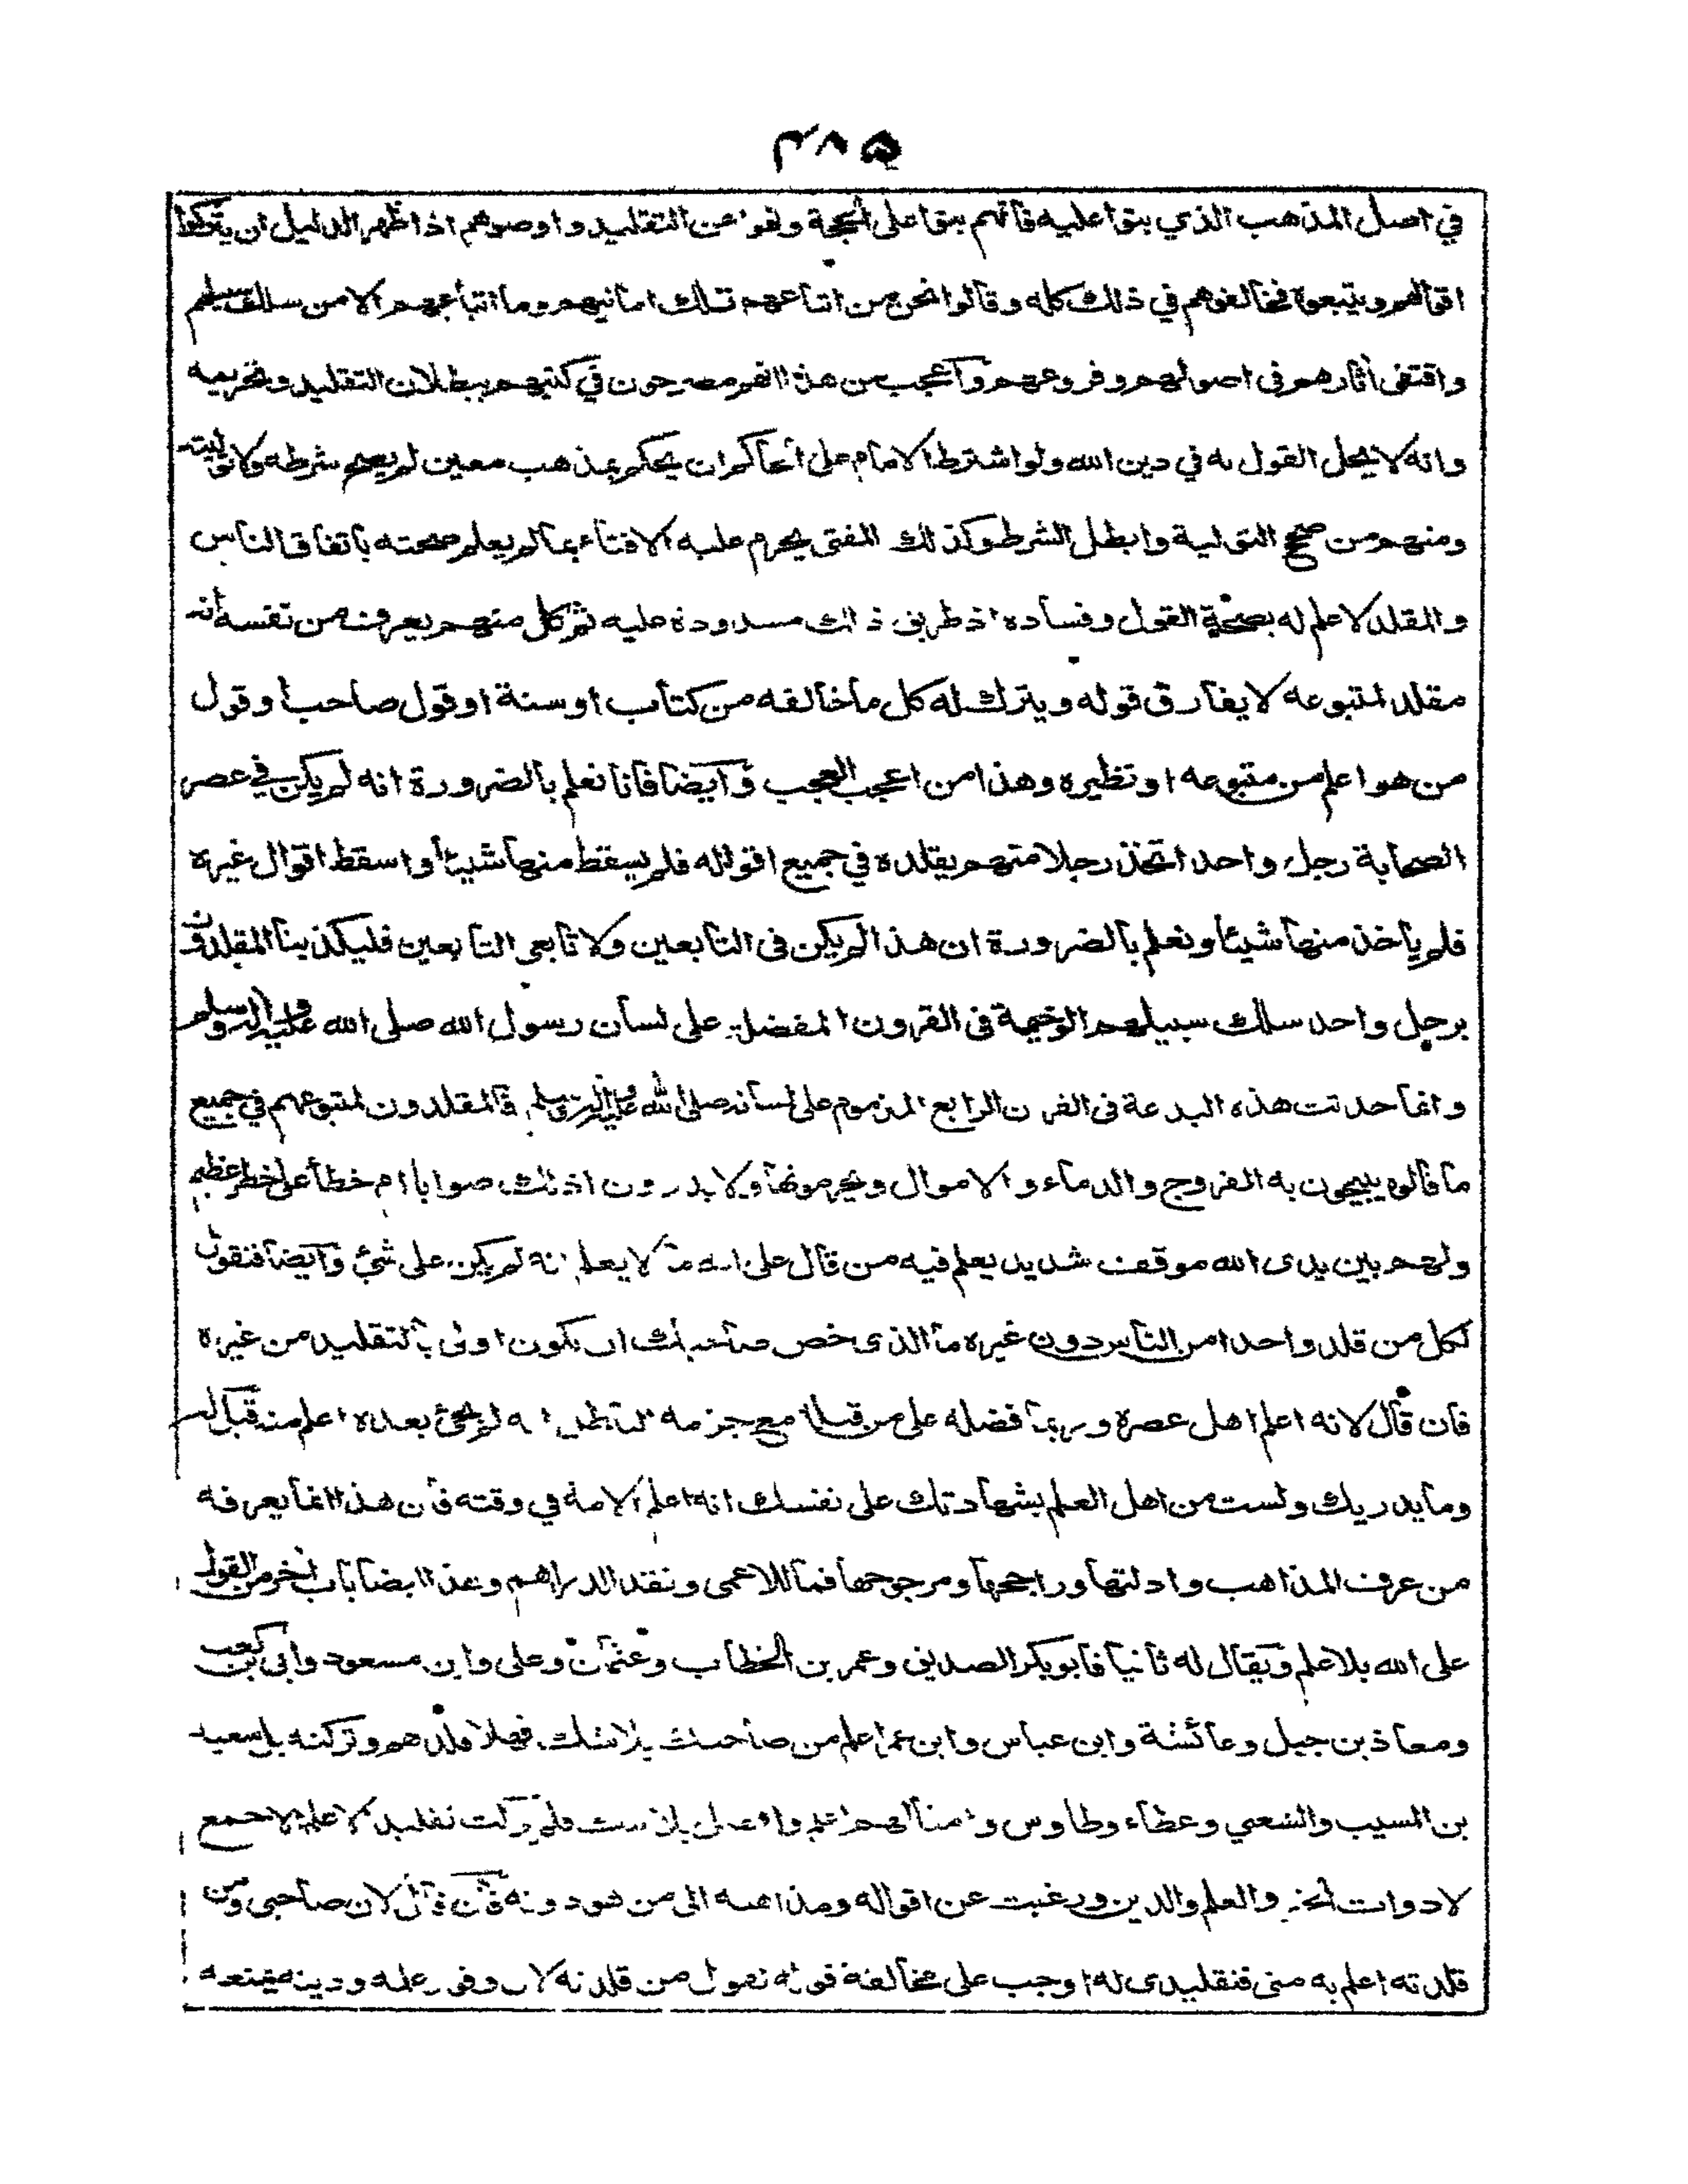 ٤٨٥
في اصل المذهب الذي بنوا عليه فانهم بنوا على الحجة ونهوا عن التقليد واوصوهم اذا ظهر الدليل ان يتركوا
اقوالهم ويتبعوه فخالفوهم في ذلك كله وقالوا نحن من اتباعهم تلك امانيهم وما اتباعهم الا من سلك سبيلهم
واقتفى آثارهم في اصولهم وفروعهم وأعجب من هذا انهم مصرحون في كتبهم ببطلان التقليد وتحريمه
وانه لا يحل القول به في دين الله ولو اشترط الامام على الحاكم ان يحكم بمذهب معين لم يصح شرطه ولا توليته
ومنهم من صحح التولية وابطل الشرط وكذلك المفتى يحرم عليه الافتاء بما لم يعلم صحته باتفاق الناس
والمقلد لا علم له بصحة القول وفساده اذ طريق ذلك مسدودة عليه ثم كل منهم يعرف من نفسه انه
مقلد لمتبوعه لا يفارق قوله ويترك له كل ما خالفه من كتاب او سنة او قول صاحب او قول
من هو اعلم من متبوعه او نظيره وهذا من اعجب العجب وأيضا فانا نعلم بالضرورة انه لم يكن في عصر
الصحابة رجل واحد اتخذ رجلا منهم يقلده في جميع اقواله فلم يسقط منها شيئا واسقط اقوال غيره
فلم يأخذ منها شيئا ونعلم بالضرورة ان هذا لم يكن في التابعين ولا تابعي التابعين فليكذبنا المقلدون
برجل واحد سلك سبيلهم الوخيمة في القرون المفضلة على لسان رسول الله صلى الله عليه وآله وسلم
وانما حدثت هذه البدعة في القرن الرابع المذموم على لسانه صلى الله عليه وآله وسلم فالمقلدون لمتبوعهم في جميع
ما قالوه يبيحون به الفروج والدماء والاموال ويحرمونها ولا يدرون اذلك صوابا ام خطأ على خطر عظيم
ولهم بين يدى الله موقف شديد يعلم فيه من قال على الله ما لا يعلم انه لم يكن على شئ وأيضا فنقول
لكل من قلد واحدا من الناس دون غيره ما الذى خص صاحبك ان يكون اولى بالتقليد من غيره
فان قال لانه اعلم اهل عصره وربما فضله على من قبله مع جزمه الباطل انه لم يجئ بعده اعلم منه قيل له
وما يدريك ولست من اهل العلم بشهادتك على نفسك انه اعلم الامة في وقته فان هذا انما يعرفه
من عرف المذاهب وادلتها وراجحها ومرجوحها فما للاعمى ونقد الدراهم وهذا ايضا باب آخر من القول
على الله بلا علم ويقال له ثانيا فابو بكر الصديق وعمر بن الخطاب وعثمان وعلى وابن مسعود وابي بن كعب
ومعاذ بن جبل وعائشة وابن عباس وابن عمر اعلم من صاحبك بلا شك فهلا قلدتهم وتركته بل سعيد
بن المسيب والشعبي وعطاء وطاوس وامثالهم اعلم وافضل بلا شك فلم تركت تقليد الاعلم الاجمع
لادوات الخير والعلم والدين ورغبت عن اقواله ومذاهبه الى من هو دونه فان قال لان صاحبي ومن
قلدته اعلم به منى فتقليدى له اوجب على مخالفة قوله لقول من قلدته لان وفور علمه ودينه يمنعه